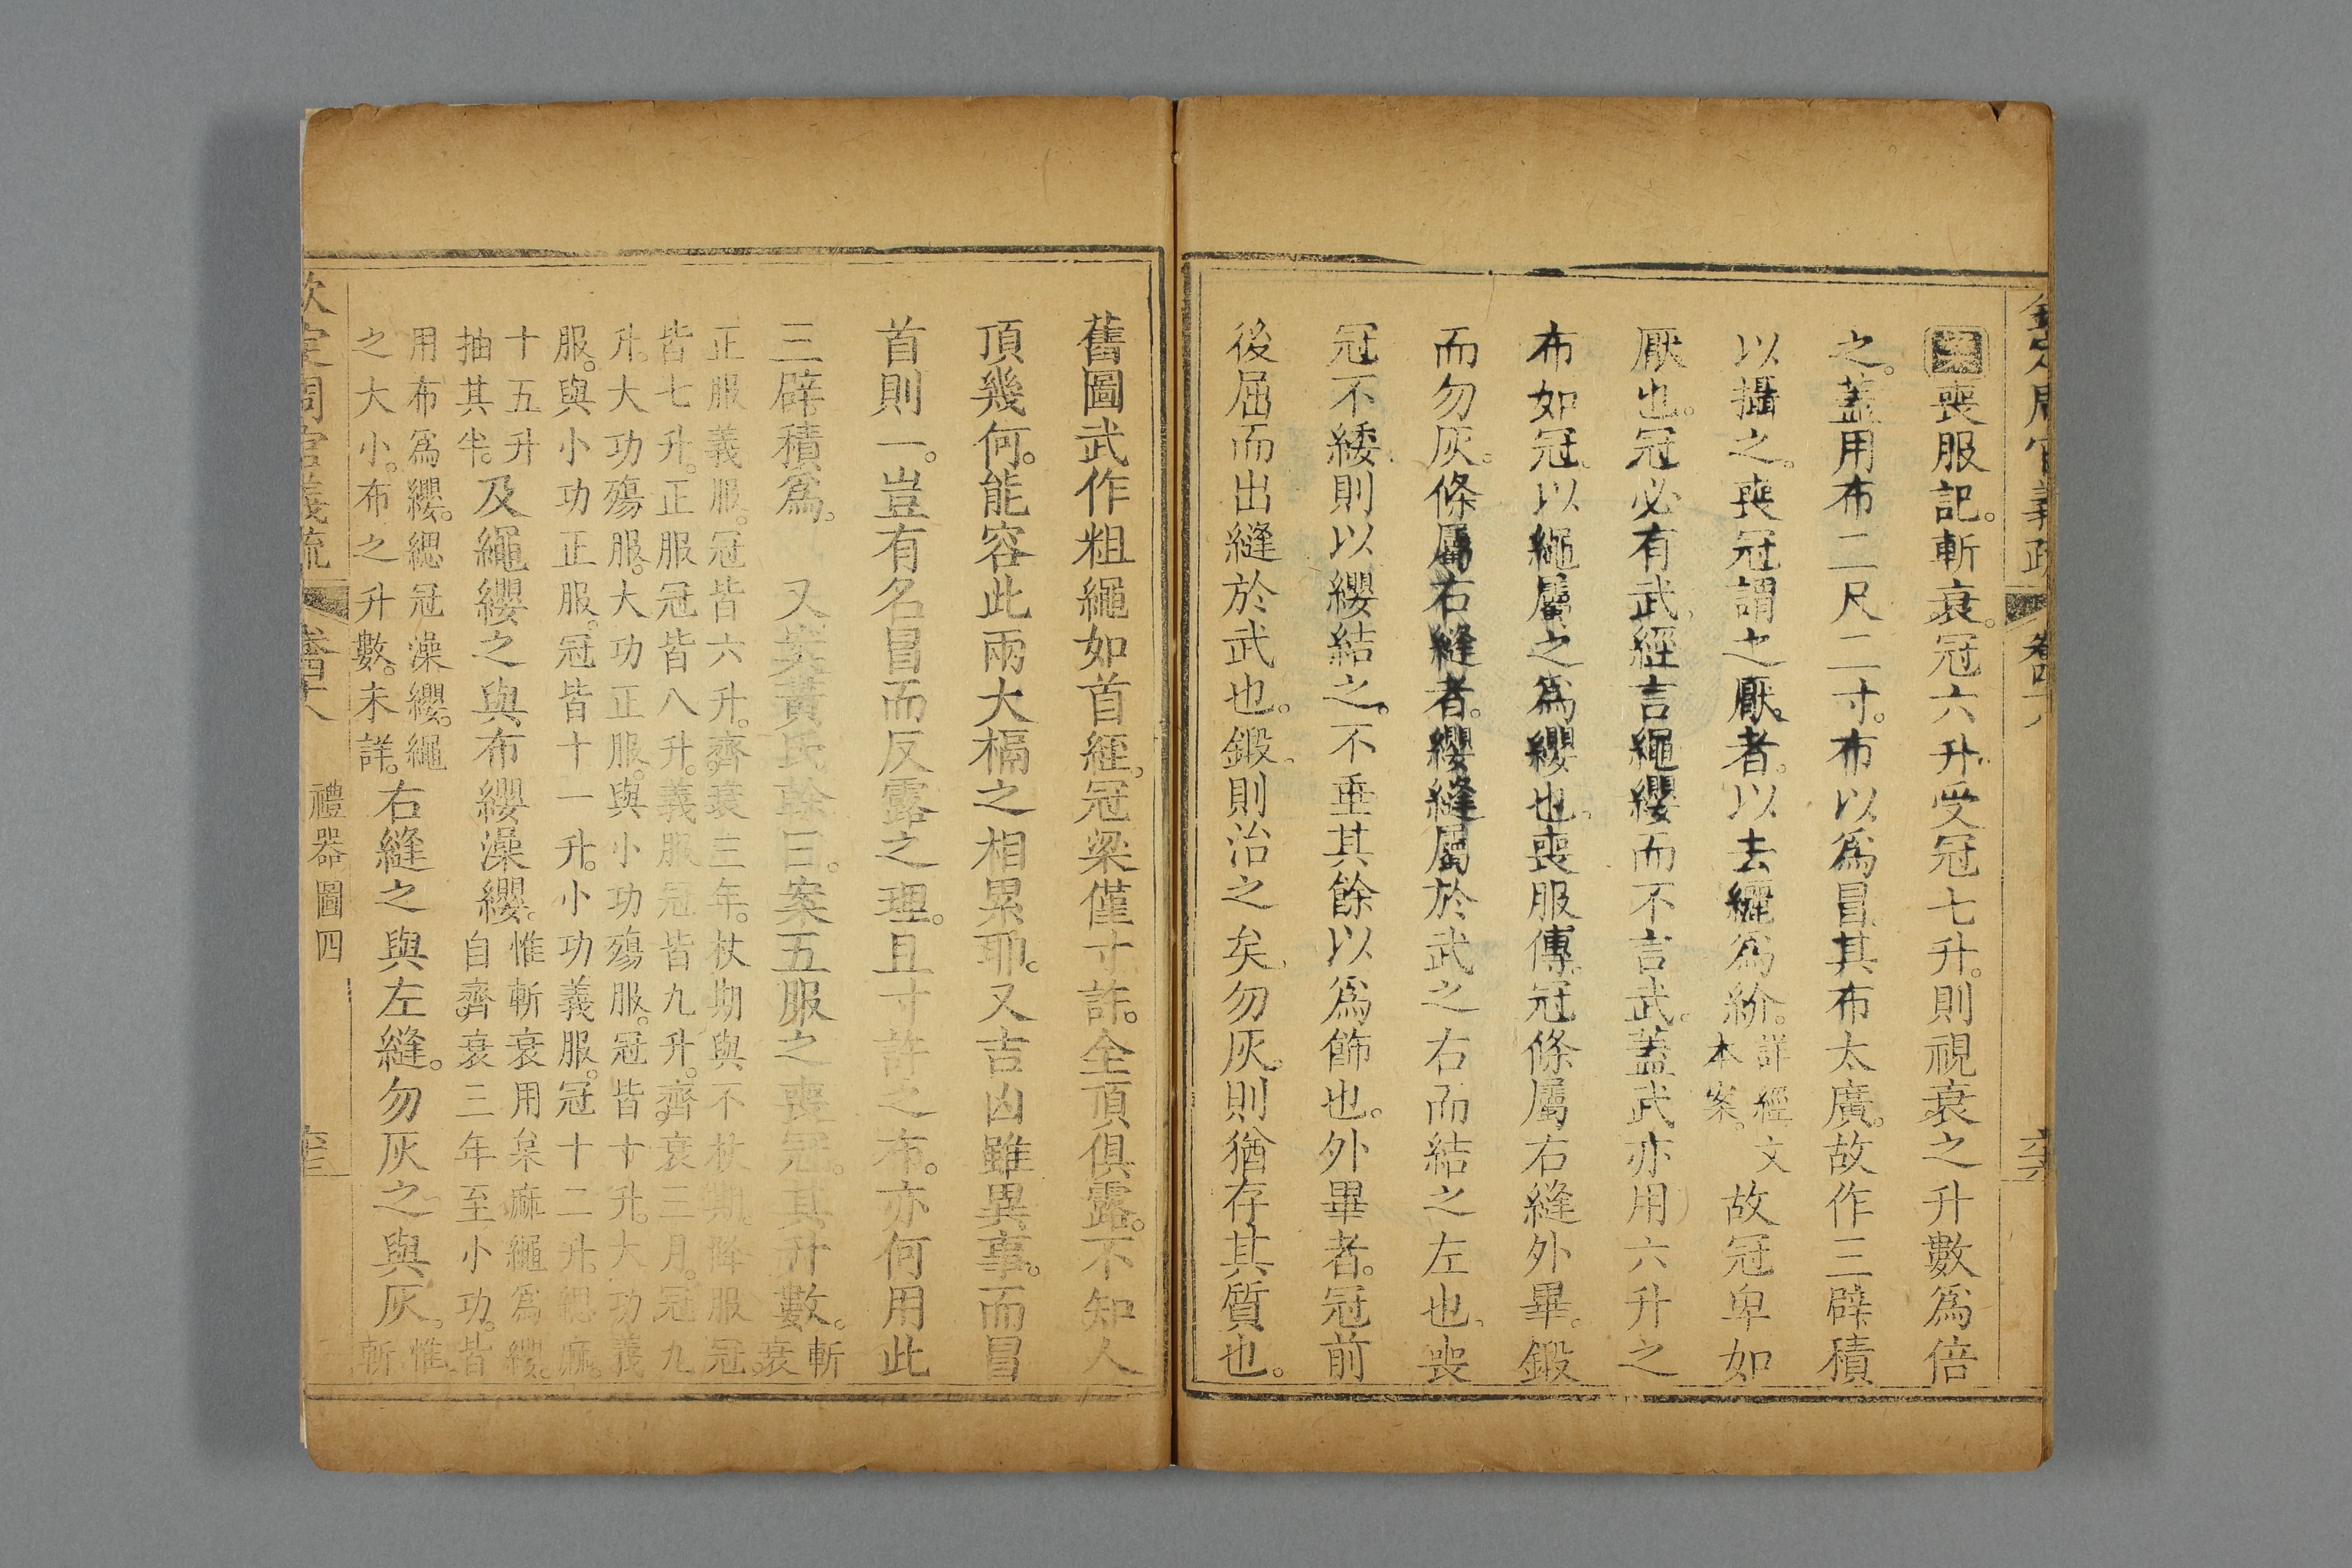 欽定周官義疏 卷四十八
案喪服記。斬衰。冠六升。受冠七升。則視衰之升數為倍
之。蓋用布二尺二寸。布以為冒。其布太廣。故作三辟積
以攝之。喪冠謂之厭者。以去纚為紒。詳經文本案。故冠卑如
厭也。冠必有武。經言繩纓而不言武。蓋武亦用六升之
布如冠。以繩屬之為纓也。喪服傳。冠條屬右縫外畢。鍛
而勿灰。條屬右縫者。纓縫屬於武之右而結之左也。喪
冠不緌。則以纓結之。不垂其餘以為飾也。外畢者。冠前
後屈而出縫於武也。鍛。則治之矣。勿灰。則猶存其質也。
舊圖武作粗繩如首絰。冠梁僅寸許。全頂俱露。不知人
頂幾何。能容此兩大槅之相累耶。又吉凶雖異事。而冒
首則一。豈有名冒而反露之理。且寸許之布。亦何用此
三辟積為。 又案黃氏榦曰。案五服之喪冠。其升數。斬衰
正服義服。冠皆六升。齊衰三年。杖期與不杖期。降服冠。
皆七升。正服冠皆八升。義服冠皆九升。齊衰三月。冠九
升。大功殤服。大功正服。與小功殤服。冠皆十升。大功義
服。與小功正服。冠皆十一升。小功義服。冠十二升。緦麻。
十五升抽其半。及繩纓之與布纓澡纓。惟斬衰用枲麻繩為纓。自齊衰三年至小功。皆
用布為纓。緦冠澡纓。繩之大小。布之升數。未詳。右縫之與左縫。勿灰之與灰。惟斬
欽定周官義疏 卷四十八 禮器圖四